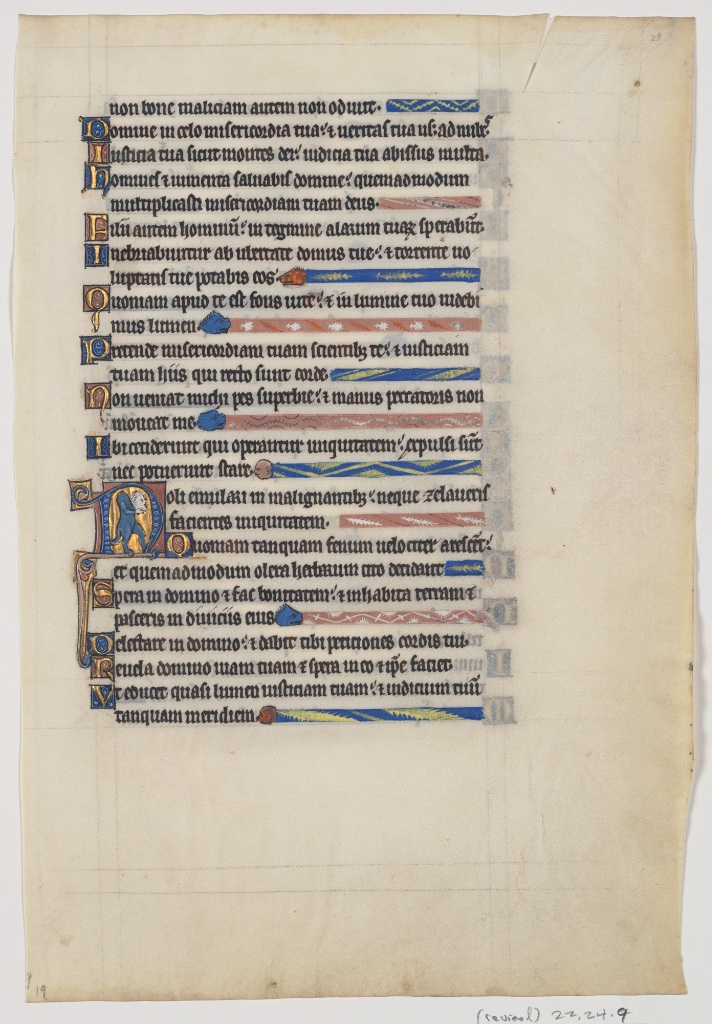 28
non bone maliciam autem non odivit.
Domine in celo misericordia tua: & veritas tua usq; ad nubes
Iusticia tua sicut montes dei: iudicia tua abissus multa.
Homines & iumenta salvabis domine: quemadmodum
multiplicasti misericordiam tuam deus.
Filii autem hominū: in tegmine alarum tuarꝝ sperabūt.
Inebriabuntur ab ubertate domus tue: & torrente vo
luptatis tue potabis eos.
Quoniam apud te est fons vite: & in lumine tuo videbi
mus lumen.
Pretende misericordiam tuam scientibꝫ te: & iusticiam
tuam hiis qui recto sunt corde.
Non veniat michi pes superbie: & manus peccatoris non
moveat me.
Ibi ceciderunt qui operantur iniquitatem: expulsi sūt
nec potuerunt stare.
Noli emulari in malignantibꝫ: neque zelaveris
facientes iniquitatem.
Quoniam tanquam fenum velociter arescēt:
et quemadmodum olera herbarum cito decidant
Spera in domino & fac bonitatem: & inhabita terram &
pasceris in diviciis eius
Delectare in domino: & dabit tibi peticiones cordis tui.
Revela domino viam tuam & spera in eo & ip̄e faciet.
Et educet quasi lumen iusticiam tuam: & iudicium tuū
tanquam meridiem.
19
22.24.9